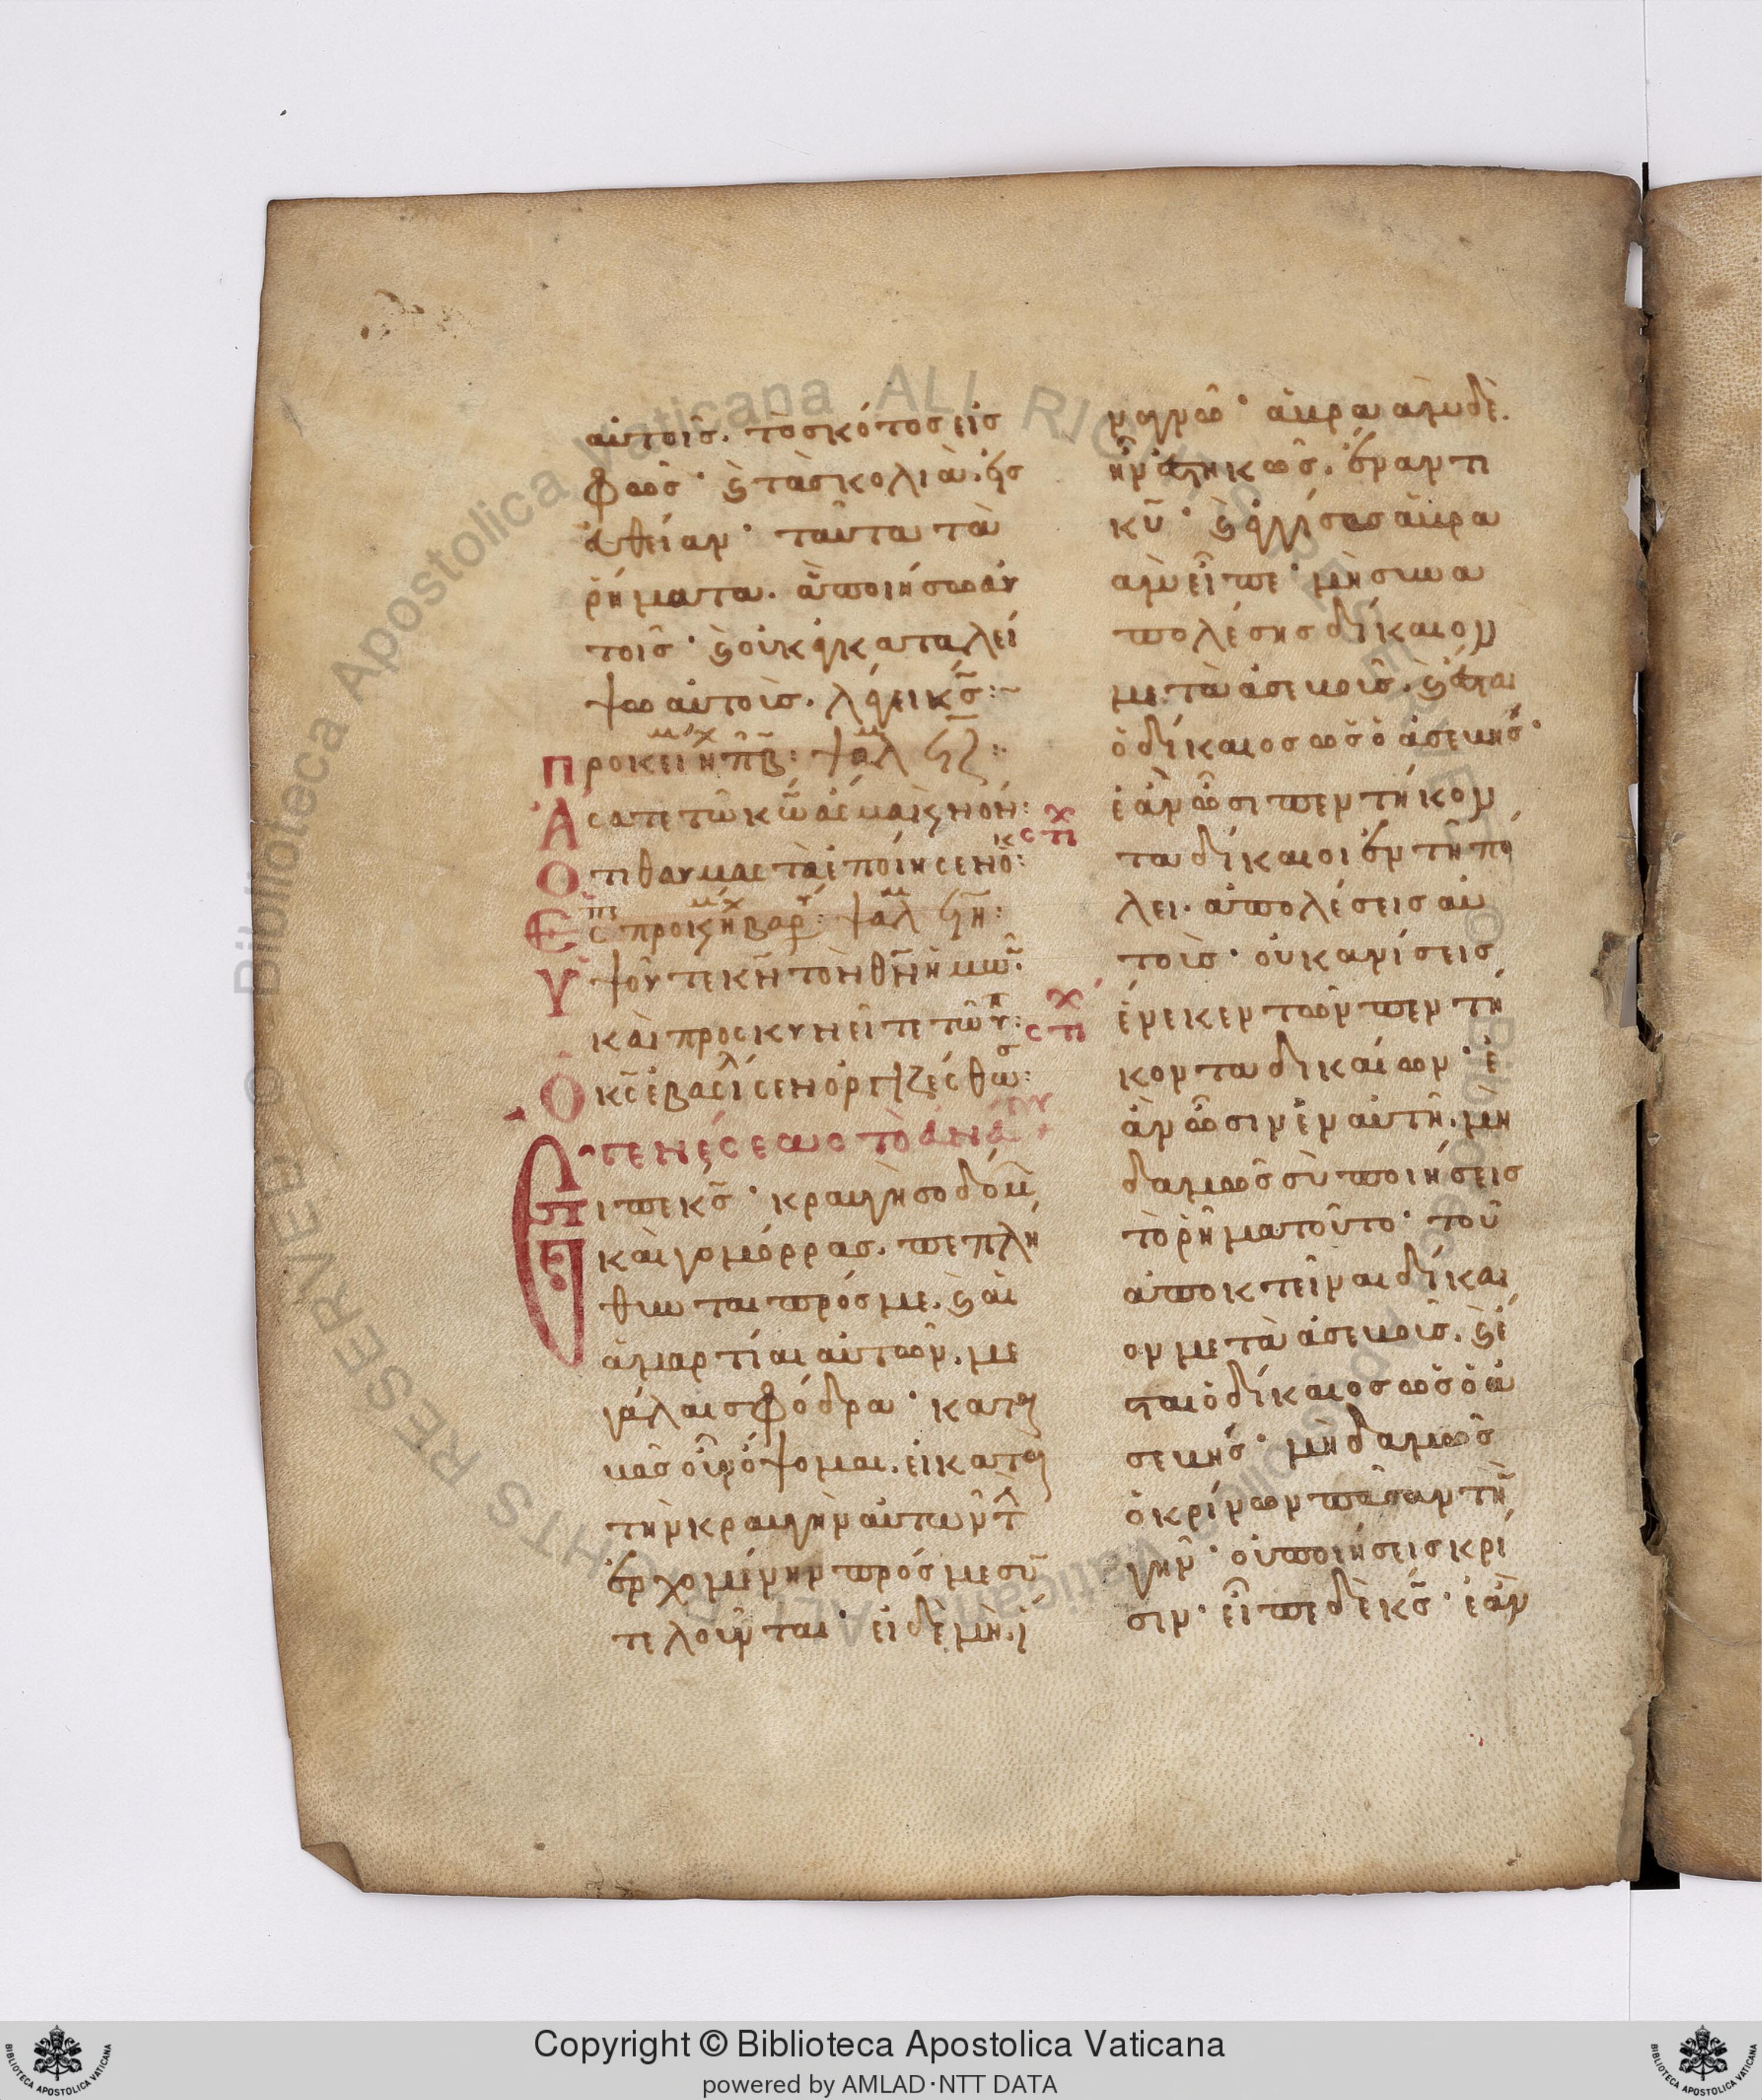 αὐτοῖς. τὸ σκότος εἰς
φῶς· ϗ τὰ σκολιὰ. εἰς
εὐθεῖαν· ταῦτα τὰ
ῥήματα. ἃ ποιήσω αὐ
τοῖς· ϗ οὐκ ἐγκαταλεί
ψω αὐτοὺς. λέγει κ̅ς̅:~
Προκεί
Ἄσατε τῶ κ̅ω̅ ἆσμα καινὸν:
Ὅτι θαυμαστὰ ἐποίησεν ὁ κ̅ς̅:
Ὑψοῦτε κ̅ν̅ τὸν θ̅ν̅ ἡμῶν·
καὶ προσκυνεῖτε τῶ ὑπ:
Ὁ κ̅ς̅ ἐβασίλευσεν ὀργιζέσθωσ:
Γενέσεως τὸ ἀνά
Εἶπε κ̅ς̅· κραυγὴ σοδόμ
καὶ γομόρρας. πεπλή
θυνται πρός με. ϗ αἱ
ἁμαρτίαι αὐτῶν. με
γάλαι σφόδρα· κατα
βὰς οὖν ὄψομαι. εἰ κατὰ
τὴν κραυγὴν αὐτῶν τὴν
ἐρχομένην πρός με συν
τελοῦνται· εἰ δὲ μὴ. ἵ
να γνῶ· ἁβραὰμ δὲ.
ἦν ἑστηκὼς. ἔναντι
κ̅υ̅· ϗ ἐγγίσας ἁβρα
ὰμ εἶπε· μὴ συνα
πολέσης δίκαιον
μετὰ ἀσεβοῦς. ϗ ἔσται
ὁ δίκαιος ὡς ὁ ἀσεβής·
ἐὰν ὦσι πεντήκον
τα δίκαιοι ἐν τῆ πό
λει. ἀπολέσεις αὐ
τοὺς· οὐκ ἀνήσεις
ἕνεκεν τῶν πεντή
κοντα δικαίων· ἐ
ὰν ὦσιν ἐν αὐτῆ. μη
δαμῶς σὺ ποιήσεις
τὸ ῥῆμα τοῦτο· τοῦ
ἀποκτεῖναι δίκαι
ον μετὰ ἀσεβοῦς. ϗ ἔ
σται ὁ δίκαιος ὡς ὁ ἀ
σεβής· μὴδαμῶς
ὁ κρίνων πᾶσαν τὴν
γῆν· οὐ ποιήσεις κρί
σιν· εἶπε δὲ κ̅ς̅· ἐὰν
Copyright © Biblioteca Apostolica Vaticana
powered by AMLAD·NTT DATA